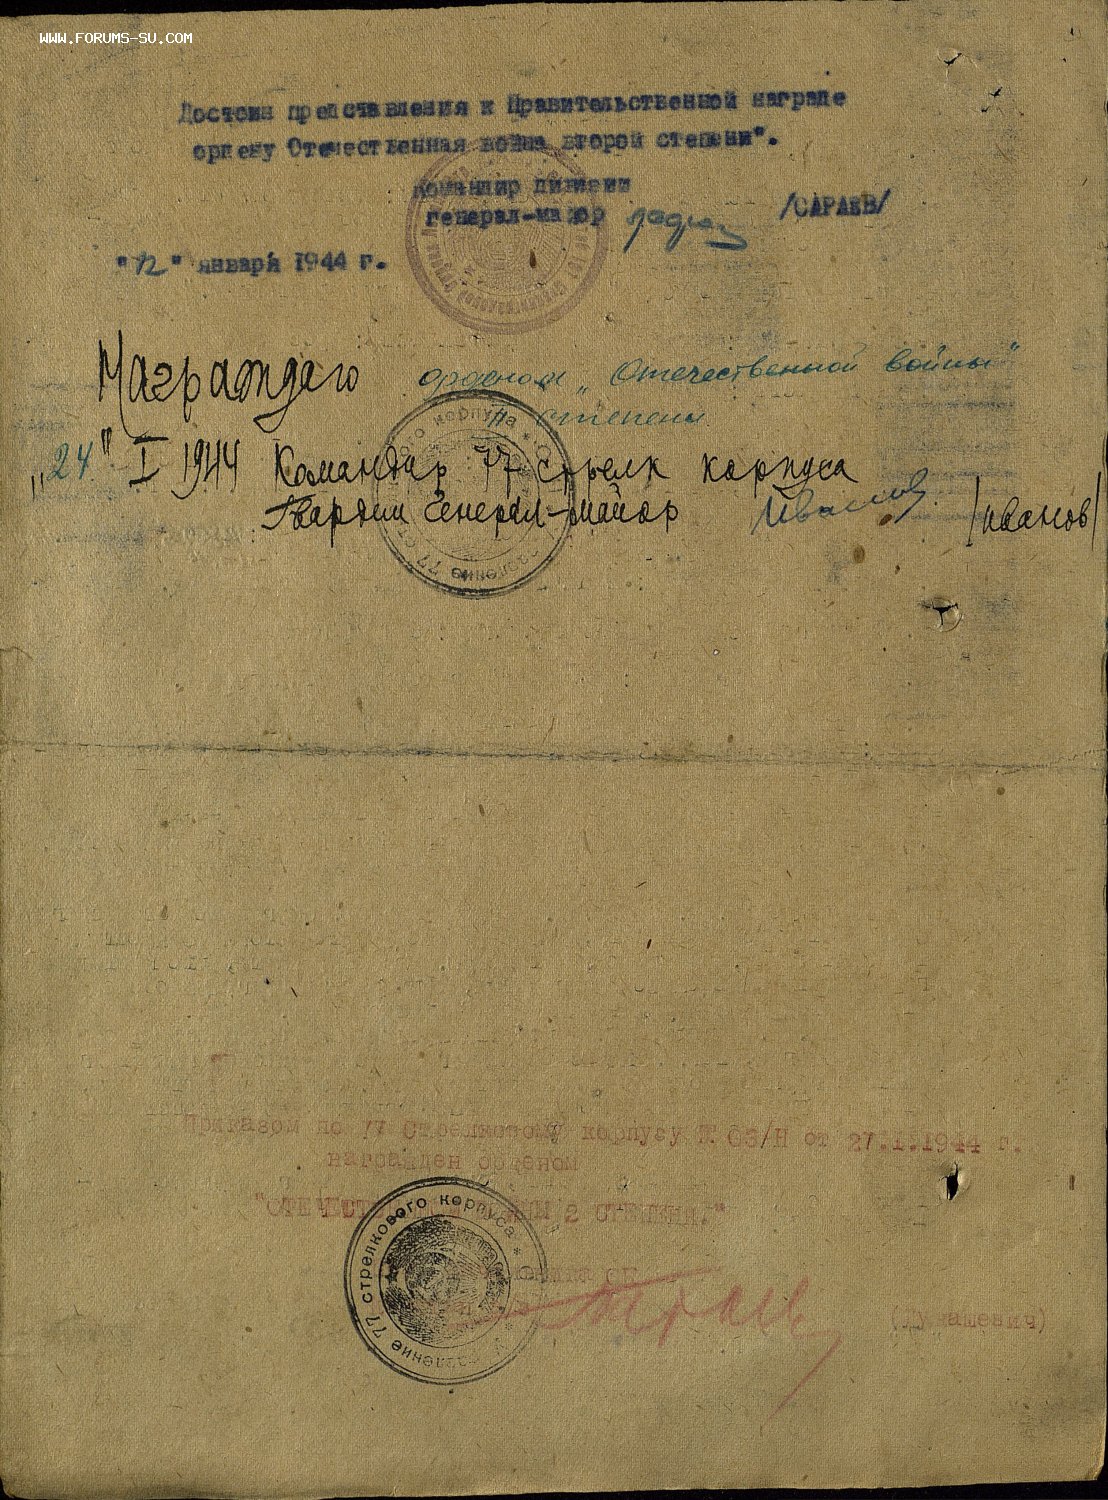 WWW.FORUMS-SU.COM
Достоин представления к Правительственной награде
ордену Отечественная война второй степени".
Командир дивизии
генерал-майор /САРАЕВ/
"12" января 1944 г.
Награждаю орденом „Отечественной войны"
II степени
„24" I 1944 Командир 77 стрелк корпуса
Гвардии Генерал-майор Иванов /Иванов/
Управление 77 стрелкового корпуса
Приказом по 77 Стрелковому корпусу № 03/Н от 27.1.1944 г.
награжден орденом
"ОТЕЧЕСТВЕННОЙ ВОЙНЫ 2 СТЕПЕНИ."
Управление 77 стрелкового корпуса